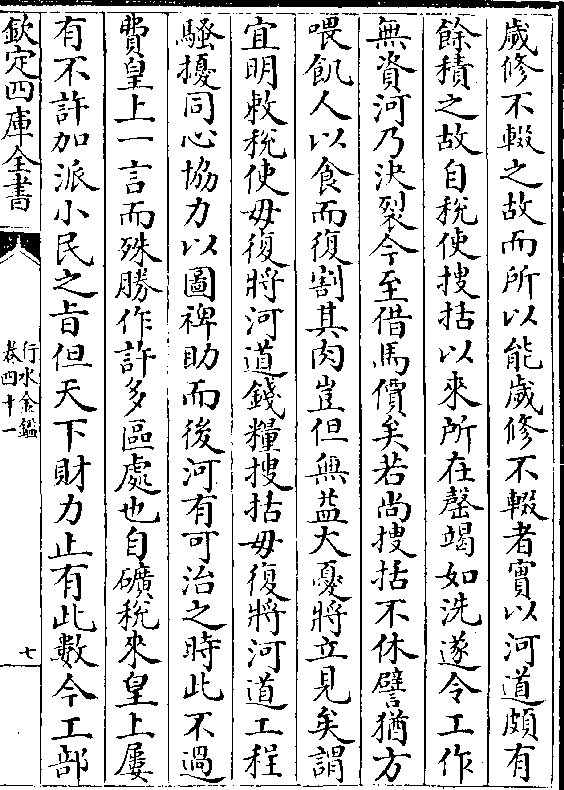 歲修不輟之故而所以能歲修不輟者實以河道頗有
餘積之故自稅使搜括以來所在罄竭如洗遂令工作
無資河乃決裂今至借馬價矣若尚搜括不休譬猶方
喂飢人以食而復割其肉豈但無益大憂將立見矣謂
宜明敕稅使毋復將河道錢糧搜括毋復將河道工程
騷擾同心協力以圖裨助而後河有可治之時此不過
費皇上一言而殊勝作許多區處也自礦稅來皇上屢
有不許加派小民之旨但天下財力止有此數今工部
欽定四庫全書
行水金鑑
卷四十一
七